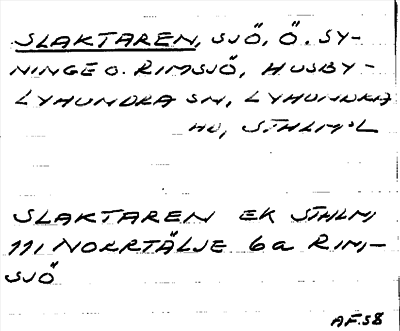 SLAKTAREN, SJÖ, Ö. SY-
NINGE O. RIMSJÖ, HUSBY-
LYHUNDRA SN, LYHUNDRA
HD, STHLM'L
SLAKTAREN EK STHLM
111 NORRTÄLJE 6a RIM-
SJÖ
AF.58